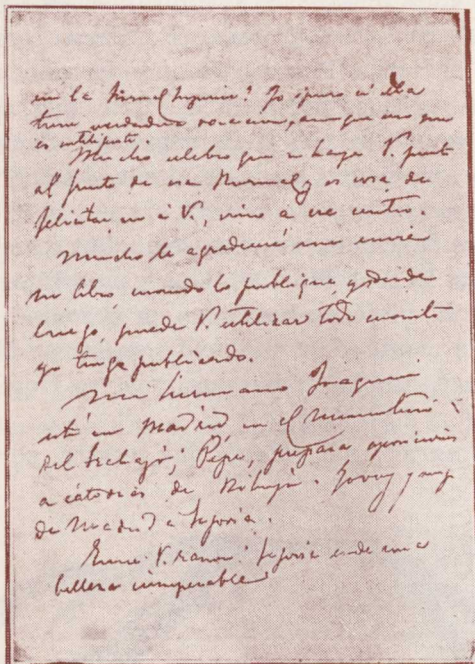 en la Normal Superior? Yo quiero si ella
tiene verdadera vocación, aunque eso me
es antipático.
Mucho celebro que se haya V. puesto
al frente de esa Normal y es cosa de
felicitar, no á V., sino á ese centro.
Mucho le agradeceré me envíe
su libro, cuando lo publique, y desde
luego, puede V. utilizar todo cuanto
yo tenga publicado.
Mi hermano Joaquín
está en Madrid en el Ministerio
del Trabajo; Pepe, prepara oposiciones
a cátedras de
de Madrid a Segovia.
V. razón: Segovia es de una
belleza insuperable